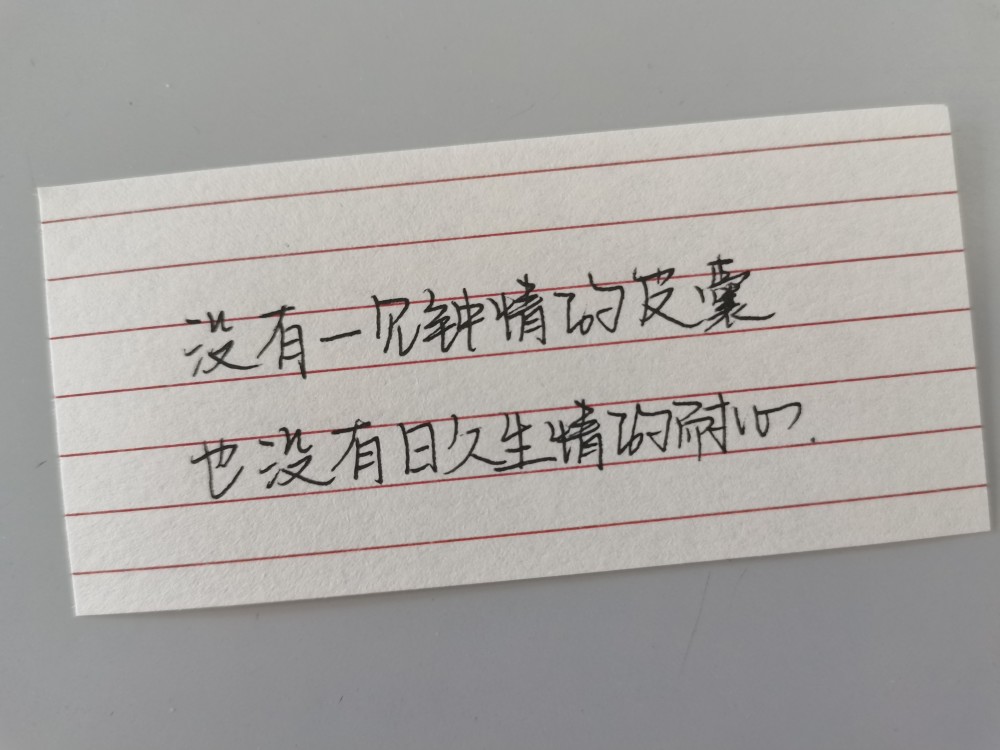 没有一见钟情的皮囊
也没有日久生情的耐心.